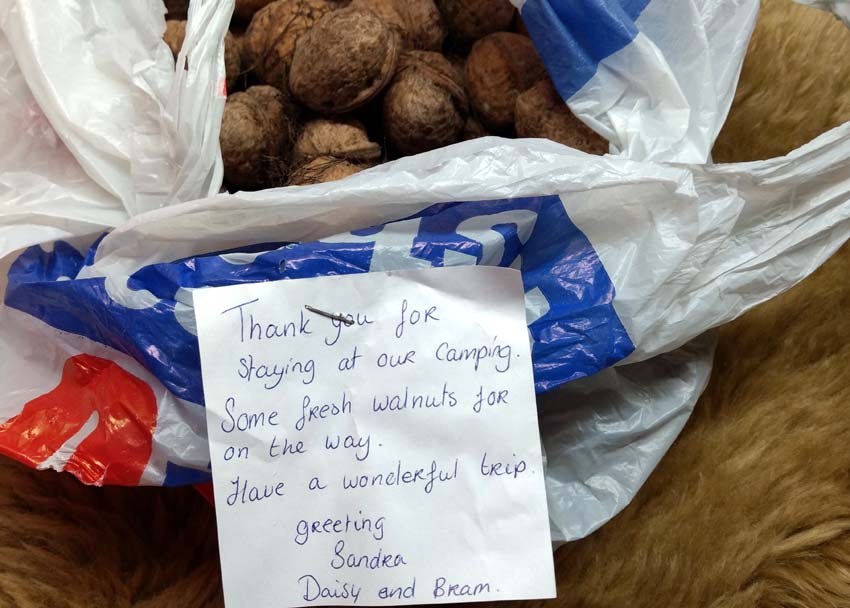 Thank you for
staying at our camping.
Some fresh walnuts for
on the way.
Have a wonderful trip.
greeting
Sandra
Daisy and Bram.